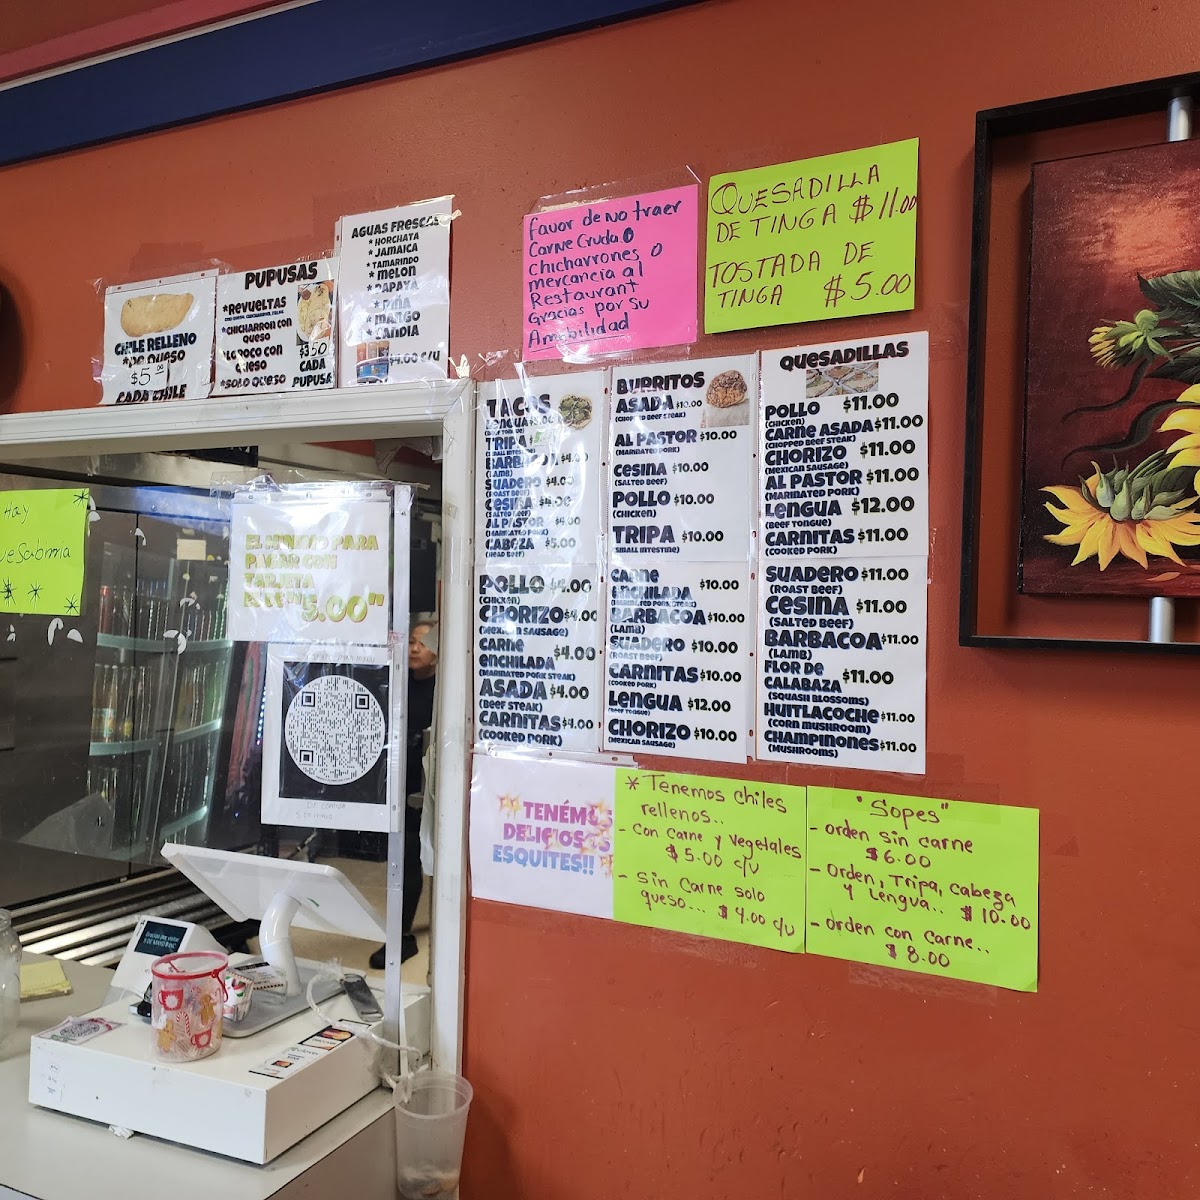 CHILE RELLENO
*DE QUESO
$5.00
CADA CHILE
PUPUSAS
*REVUELTAS
*CHICHARRON CON
QUESO
*LOROCO CON
QUESO
*SOLO QUESO
$3.50
CADA
PUPUSA
AGUAS FRESCAS
*HORCHATA
*JAMAICA
*TAMARINDO
*MELON
*PAPAYA
*PIÑA
*MANGO
*SANDIA
$4.00 c/u
Favor de No traer
Carne Cruda o
Chicharrones o
mercancia al
Restaurant
Gracias por su
Amabilidad
QUESADILLA
DE TINGA $11.00
TOSTADA DE
TINGA $5.00
TACOS
LENGUA
(BEEF TONGUE)
TRIPA
(SMALL INTESTINE)
BARBACOA $4.00
(LAMB)
SUADERO $4.00
(ROAST BEEF)
CESINA $4.00
(SALTED BEEF)
AL PASTOR $4.00
(MARINATED PORK)
CABEZA $5.00
(HEAD BEEF)
POLLO $4.00
(CHICKEN)
CHORIZO $4.00
(MEXICAN SAUSAGE)
CARNE
ENCHILADA $4.00
(MARINATED PORK STEAK)
ASADA $4.00
(BEEF STEAK)
CARNITAS $4.00
(COOKED PORK)
BURRITOS
ASADA $10.00
(CHOPPED BEEF STEAK)
AL PASTOR $10.00
(MARINATED PORK)
CESINA $10.00
(SALTED BEEF)
POLLO $10.00
(CHICKEN)
TRIPA $10.00
(SMALL INTESTINE)
CARNE
ENCHILADA $10.00
(MARINATED PORK STEAK)
BARBACOA $10.00
(LAMB)
SUADERO $10.00
(ROAST BEEF)
CARNITAS $10.00
(COOKED PORK)
LENGUA $12.00
(BEEF TONGUE)
CHORIZO $10.00
(MEXICAN SAUSAGE)
QUESADILLAS
POLLO $11.00
(CHICKEN)
CARNE ASADA $11.00
(CHOPPED BEEF STEAK)
CHORIZO $11.00
(MEXICAN SAUSAGE)
AL PASTOR $11.00
(MARINATED PORK)
LENGUA $12.00
(BEEF TONGUE)
CARNITAS $11.00
(COOKED PORK)
SUADERO $11.00
(ROAST BEEF)
CESINA $11.00
(SALTED BEEF)
BARBACOA $11.00
(LAMB)
FLOR DE
CALABAZA $11.00
(SQUASH BLOSSOMS)
HUITLACOCHE $11.00
(CORN MUSHROOM)
CHAMPINONES $11.00
(MUSHROOMS)
Hay
EL MINIMO PARA
PAGAR CON
TARJETA
5.00"
TENÉMOS
DELICIOSOS
ESQUITES!!
* Tenemos chiles
rellenos..
- Con Carne y Vegetales
$5.00 c/u
- Sin Carne solo
queso... $4.00 c/u
"Sopes"
- orden sin carne
$6.00
- Orden, Tripa, Cabeza
y Lengua.. $10.00
- orden con carne..
$8.00